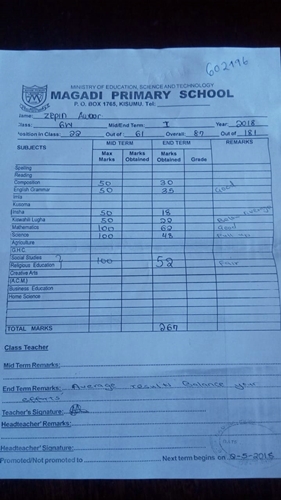 602196
MINISTRY OF EDUCATION, SCIENCE AND TECHNOLOGY
MAGADI PRIMARY SCHOOL
P. O. BOX 1768, KISUMU. Tel:
Name: Zepin
Class: 6W Mid/End Term: I Year 2018
Position in Class: 22 Out of 61 Overall 87 Out of 181
SUBJECTS MID TERM END TERM REMARKS
Max Marks Marks Obtained Marks Obtained Grade
Spelling
Reading
Composition 50 30
English Grammar 50 35 Good
Insa
Kusoma
Insha 50 18
Kiswahili Lugha 50 22
Mathematics 100 62 Good
Science 100 48
Agriculture
G.H.C.
Social Studies
Religious Education } 100 52 Fair
Creative Arts
(A.C.M.)
Business Education
Home Science
TOTAL MARKS 267
Class Teacher
Mid Term Remarks:
End Term Remarks: Average results
efforts
Teacher's Signature:
Headteacher' Remarks:
Headteacher' Signature:
Promoted/Not promoted to Next term begins on 2-5-2018